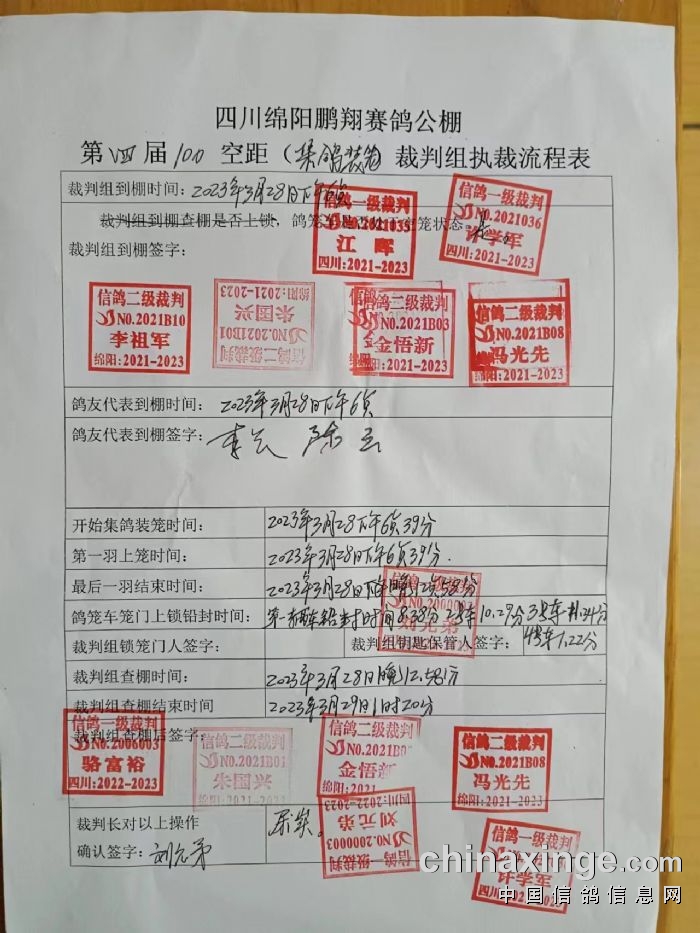 四川绵阳鹏翔赛鸽公棚
第四届100空距（集鸽装笼）裁判组执裁流程表
裁判组到棚时间：2023年3月28日下午6点
裁判组到棚查棚是否上锁，鸽笼车是否处于空笼状态。
信鸽一级裁判
No.2021035
江晖
四川:2021-2023
信鸽一级裁判
No.2021036
计学军
四川:2021-2023
裁判组到棚签字：
信鸽二级裁判
NO.2021B10
李祖军
绵阳:2021-2023
信鸽二级裁判
NO.2021B01
朱国兴
绵阳:2021-2023
信鸽二级裁判
NO.2021B03
金悟新
绵阳:2021-2023
信鸽二级裁判
NO.2021B08
冯光先
绵阳:2021-2023
鸽友代表到棚时间：2023年3月28日下午6点
鸽友代表到棚签字：
开始集鸽装笼时间：2023年3月28下午6点39分
第一羽上笼时间：2023年3月28日下午6点39分.
最后一羽结束时间：2023年3月28日下午晚12点58分
鸽笼车笼门上锁铅封时间：第一车铅封时间8.38分 2号车10.29分 3号车11.34分
4号车1.22分
裁判组锁笼门人签字：
裁判组钥匙保管人签字：
NO.2000003
刘元第
裁判组查棚时间：2023年3月28日晚12.58分
裁判组查棚结束时间 2023年3月29日1时20分
裁判组查棚后签字：
信鸽一级裁判
No.2006003
骆富裕
四川:2022-2023
信鸽二级裁判
NO.2021B01
朱国兴
绵阳:2021-2023
信鸽二级裁判
NO.2021B03
金悟新
绵阳:2021-2023
信鸽二级裁判
NO.2021B08
冯光先
绵阳:2021-2023
裁判长对以上操作
确认签字：刘元第
NO.2000003
刘元第
四川:2022-2023
信鸽一级裁判
计学军
四川:2021-2023
chinaxinge.com
中国信鸽信息网